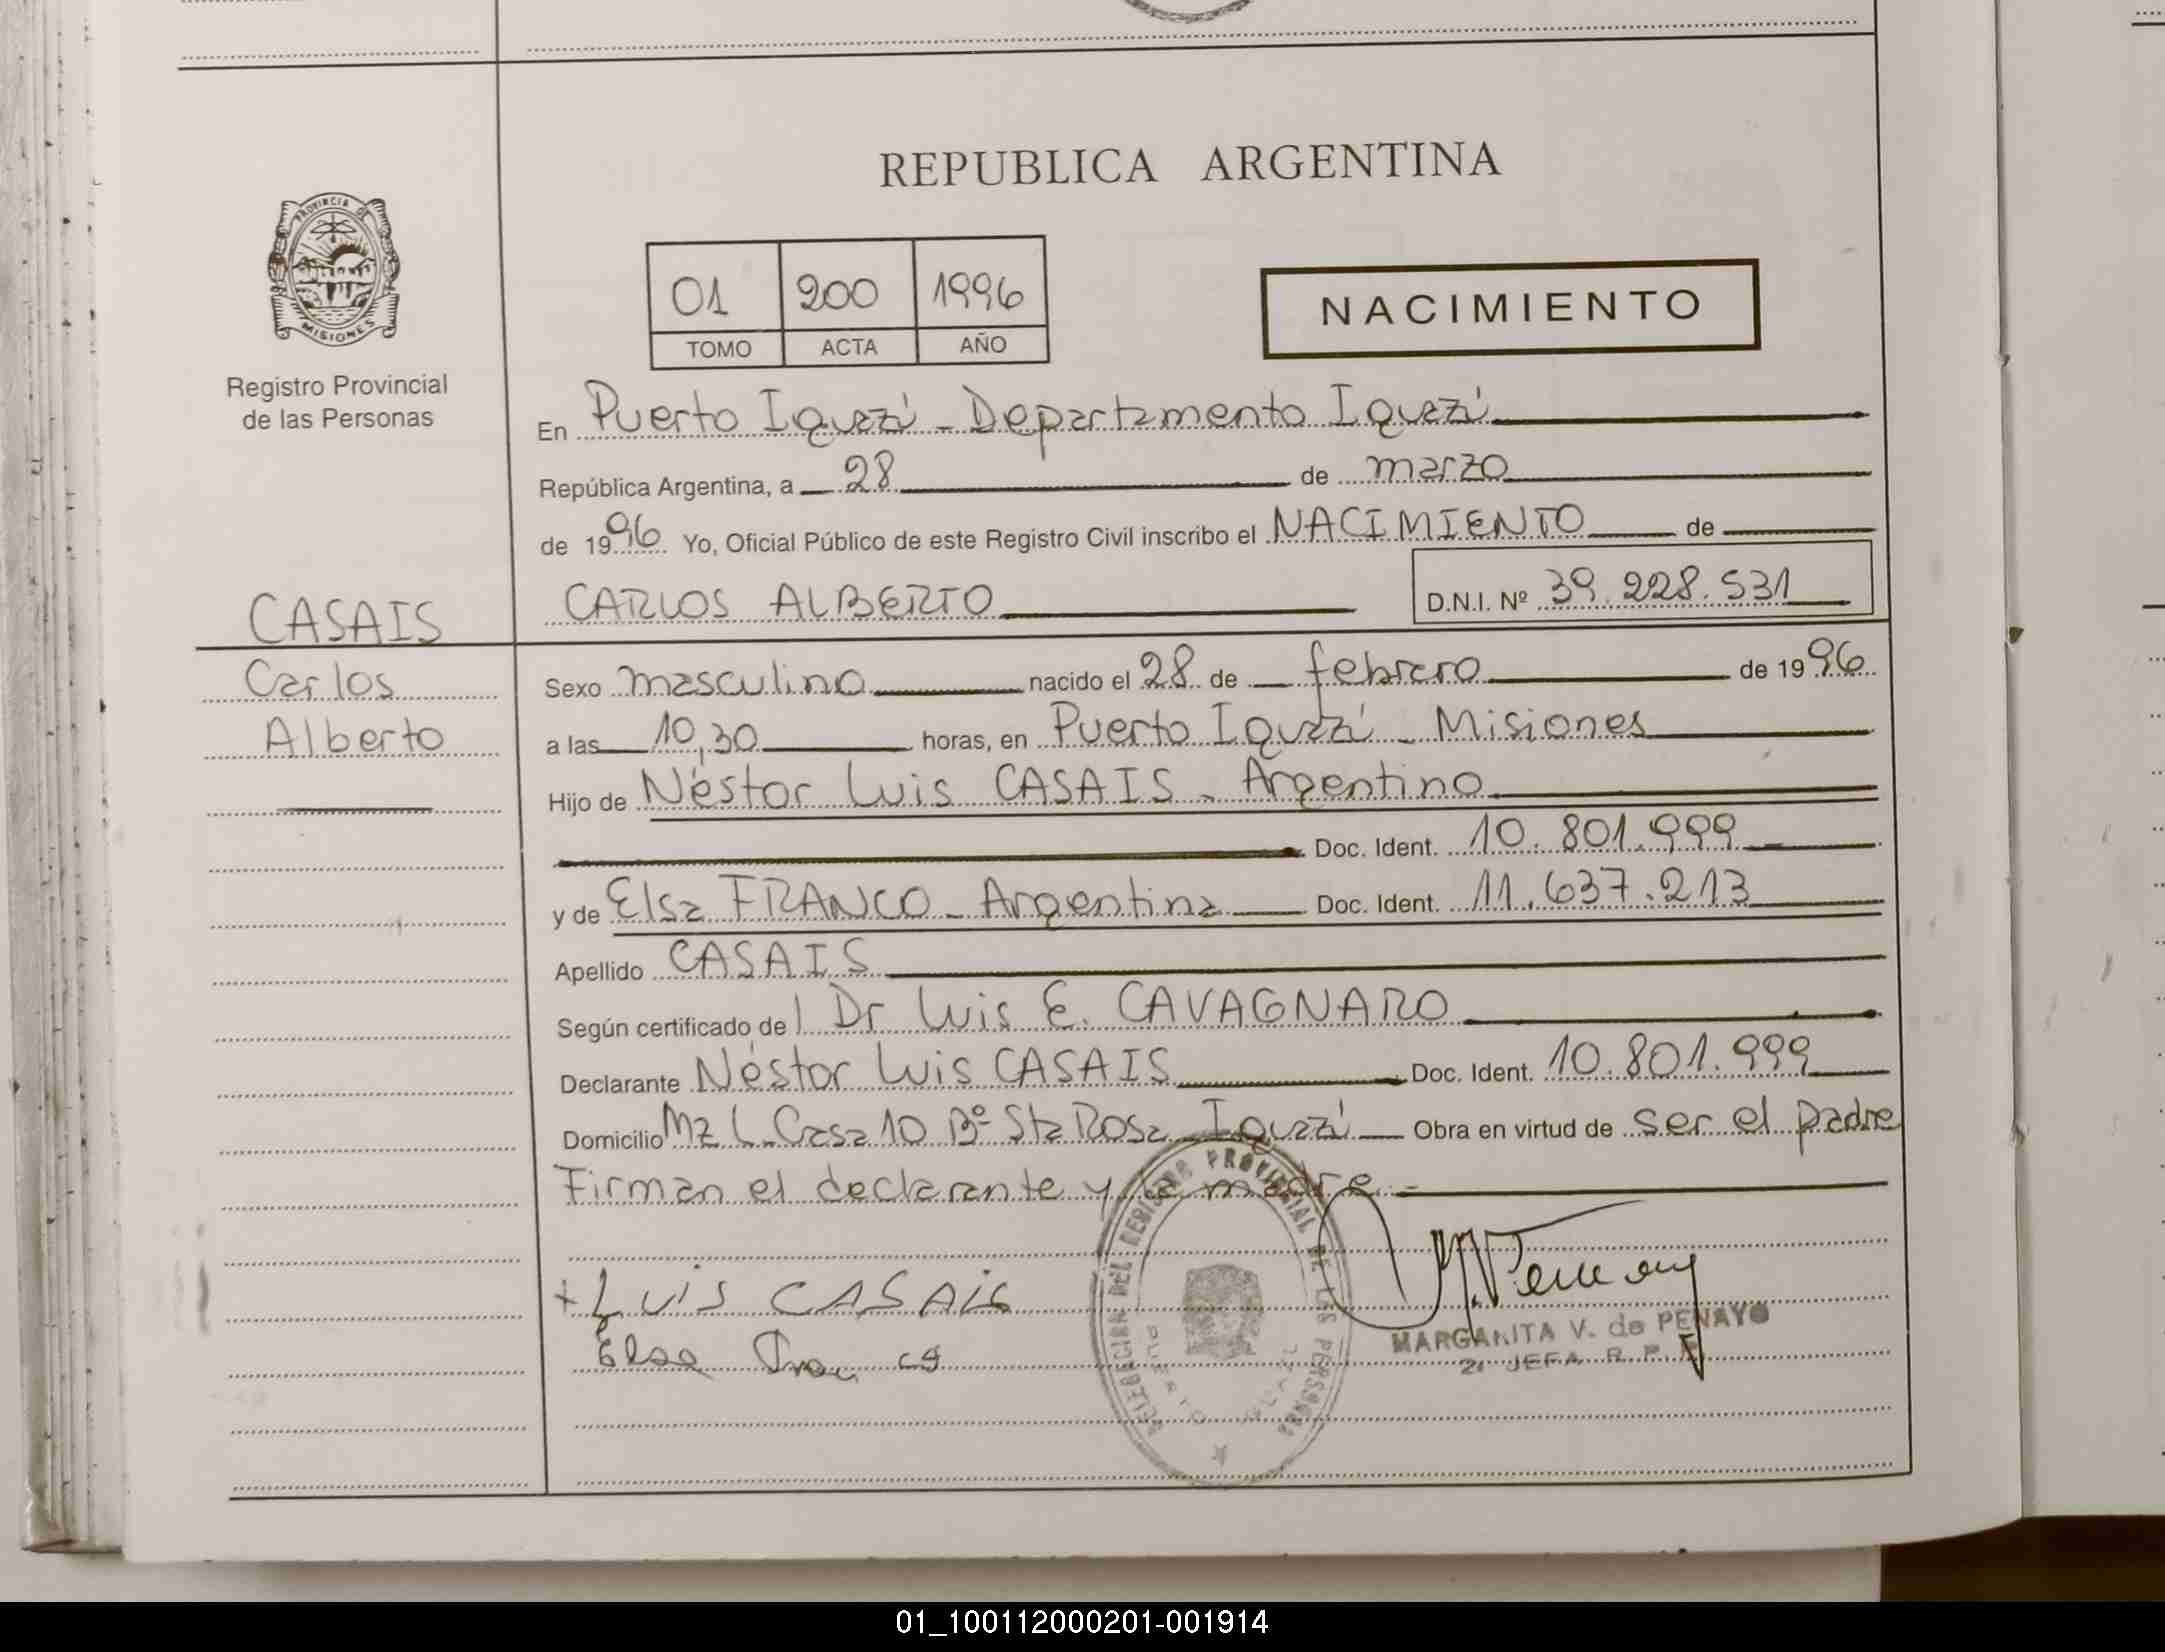 REPUBLICA ARGENTINA
PROVINCIA DE
MISIONES
Registro Provincial
de las Personas
01 200 1996
TOMO ACTA AÑO
NACIMIENTO
En Puerto Iguazú - Departamento Iguazú
República Argentina, a 28 de marzo
de 1996 Yo, Oficial Público de este Registro Civil inscribo el NACIMIENTO de
CARLOS ALBERTO D.N.I. Nº 39.228.531
CASAIS
Carlos
Alberto
Sexo masculino nacido el 28 de febrero de 1996
a las 10,30 horas, en Puerto Iguazú - Misiones
Hijo de Néstor Luis CASAIS - Argentino
Doc. Ident. 10.801.999
y de Elsa FRANCO - Argentina Doc. Ident. 11.637.213
Apellido CASAIS
Según certificado del Dr Luis E. CAVAGNARO
Declarante Néstor Luis CASAIS Doc. Ident. 10.801.999
Domicilio Mz L Casa 10 Bº Sta Rosa - Iguazú Obra en virtud de ser el padre
Firman el declarante y la madre.-
+ LUIS CASAIS
Elsa
DELEGACION DEL REGISTRO PROVINCIAL DE LAS PERSONAS
PUERTO
MARGARITA V. de PENAYO
JEFA R. P.
01_100112000201-001914